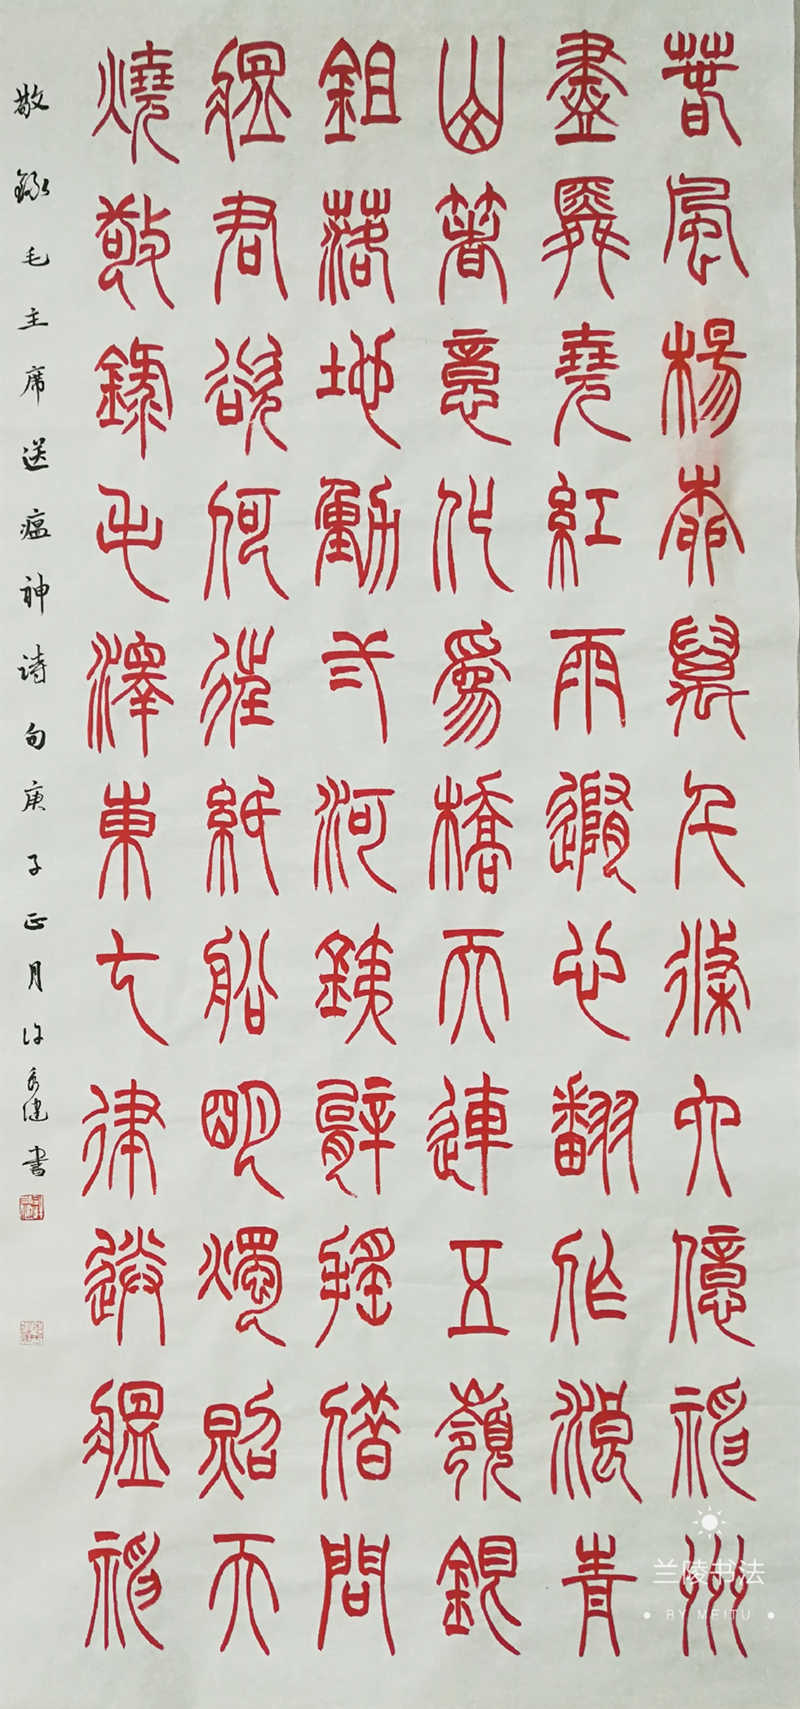 春風楊柳萬千條六億神州
盡舜堯紅雨隨心翻作浪青
山著意化爲橋天連五嶺銀
鉏落地動三河鐵臂搖借問
瘟君欲何往紙船明燭照天
燒敬錄毛澤東七律送瘟神
敬録毛主席送瘟神诗句庚子正月许健书
兰陵书法
BY MEITU